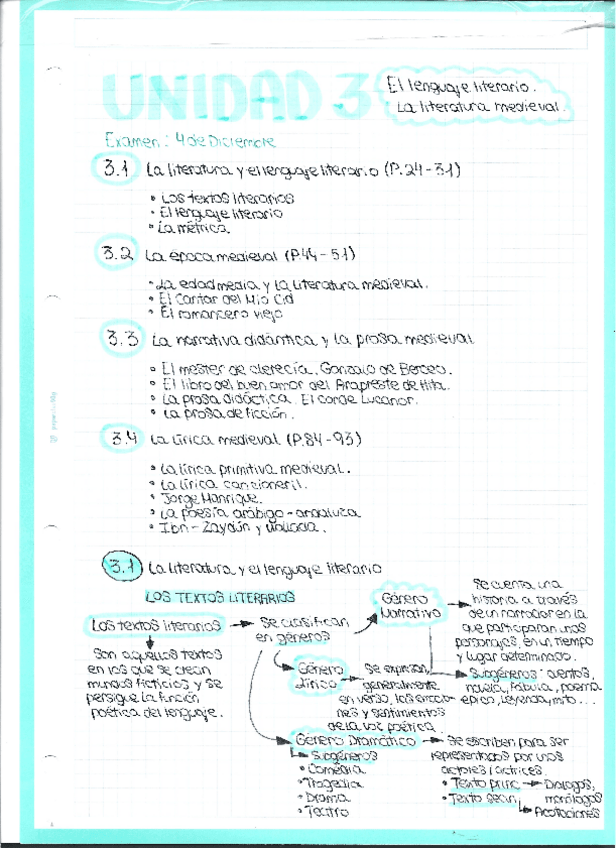 UNIDAD 3
El lenguaje literario.
La literatura medieval.
Examen: 4 de Diciembre
3.1 La literatura y el lenguaje literario (P.24-31)
• Los textos literarios
• El lenguaje literario
• La métrica.
3.2 La época medieval (P.44-51)
• La edad media y la literatura medieval.
• El Cantar del Mio Cid
• El romancero viejo
3.3 La narrativa didáctica y la prosa medieval
• El mester de clerecía. Gonzalo de Berceo.
• El libro del buen amor del Arapreste de Hita.
• La prosa didáctica. El conde Lucanor.
• La prosa de ficción.
3.4 La lírica medieval (P.84-93)
• La lírica primitiva medieval.
• La lírica cancioneril.
• Jorge Manrique.
• La poesía arábigo-andaluza
• Ibn-Zaydún y Wallada.
3.1 La literatura y el lenguaje literario
LOS TEXTOS LITERARIOS
Los textos literarios → Se clasifican
en géneros
Son aquellos textos
en los que se crean
mundos ficticios y se
persigue la función
poética del lenguaje.
Género
Narrativo
Se cuenta una
historia a través
de un narrador en la
que participaran unos
personajes, en un tiempo
y lugar determinado.
Subgéneros: cuentos,
novela, fábula, poema
epico, leyenda, mito...
Género
Lírico
Se expresan,
generalmente
en verso, las emocio-
nes y sentimientos
de la voz poética.
Género Dramático
Subgéneros
• Comedia
• Tragedia
• Drama
• Teatro
Se escriben para ser
representados por unos
actores/actrices.
• Texto princ → Dialogos,
monólogos
• Texto secun
Acotaciones